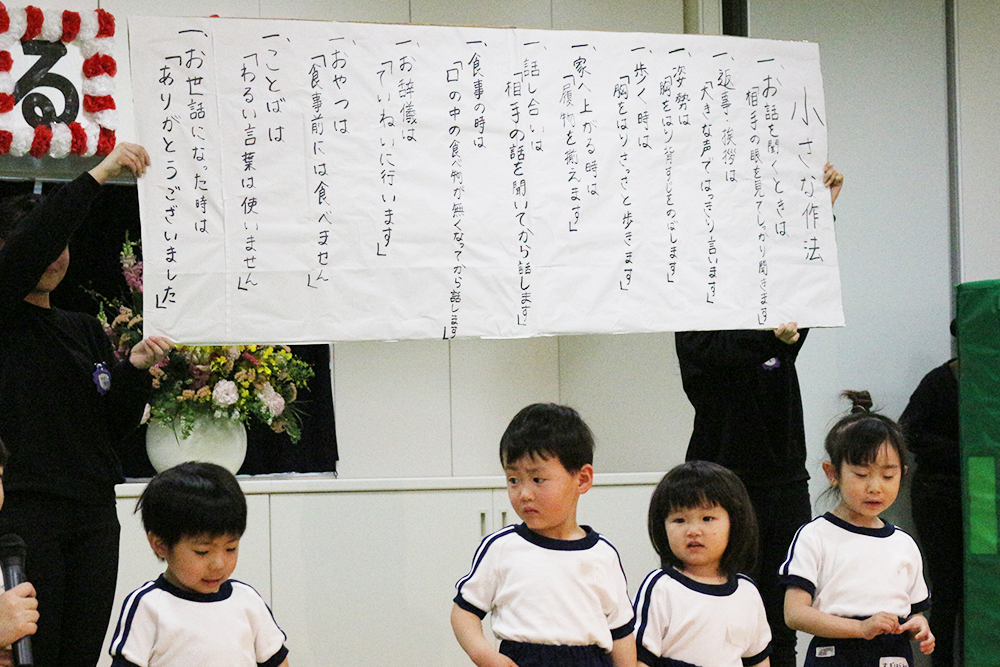 小さな作法
一、お話を聞くときは
「相手の眼を見てしっかり聞きます」
一、返事・挨拶は
「大きな声ではっきり言います」
一、姿勢は
「胸をはり背すじをのばします」
一、歩く時は
「胸をはりさっさと歩きます」
一、家へ上がる時は
「履物を揃えます」
一、話し合いは
「相手の話を聞いてから話します」
一、食事の時は
「口の中の食べ物が無くなってから話します」
一、お辞儀は
「ていねいに行います」
一、おやつは
「食事前には食べません」
一、ことばは
「わるい言葉は使いません」
一、お世話になった時は
「ありがとうございました」
る